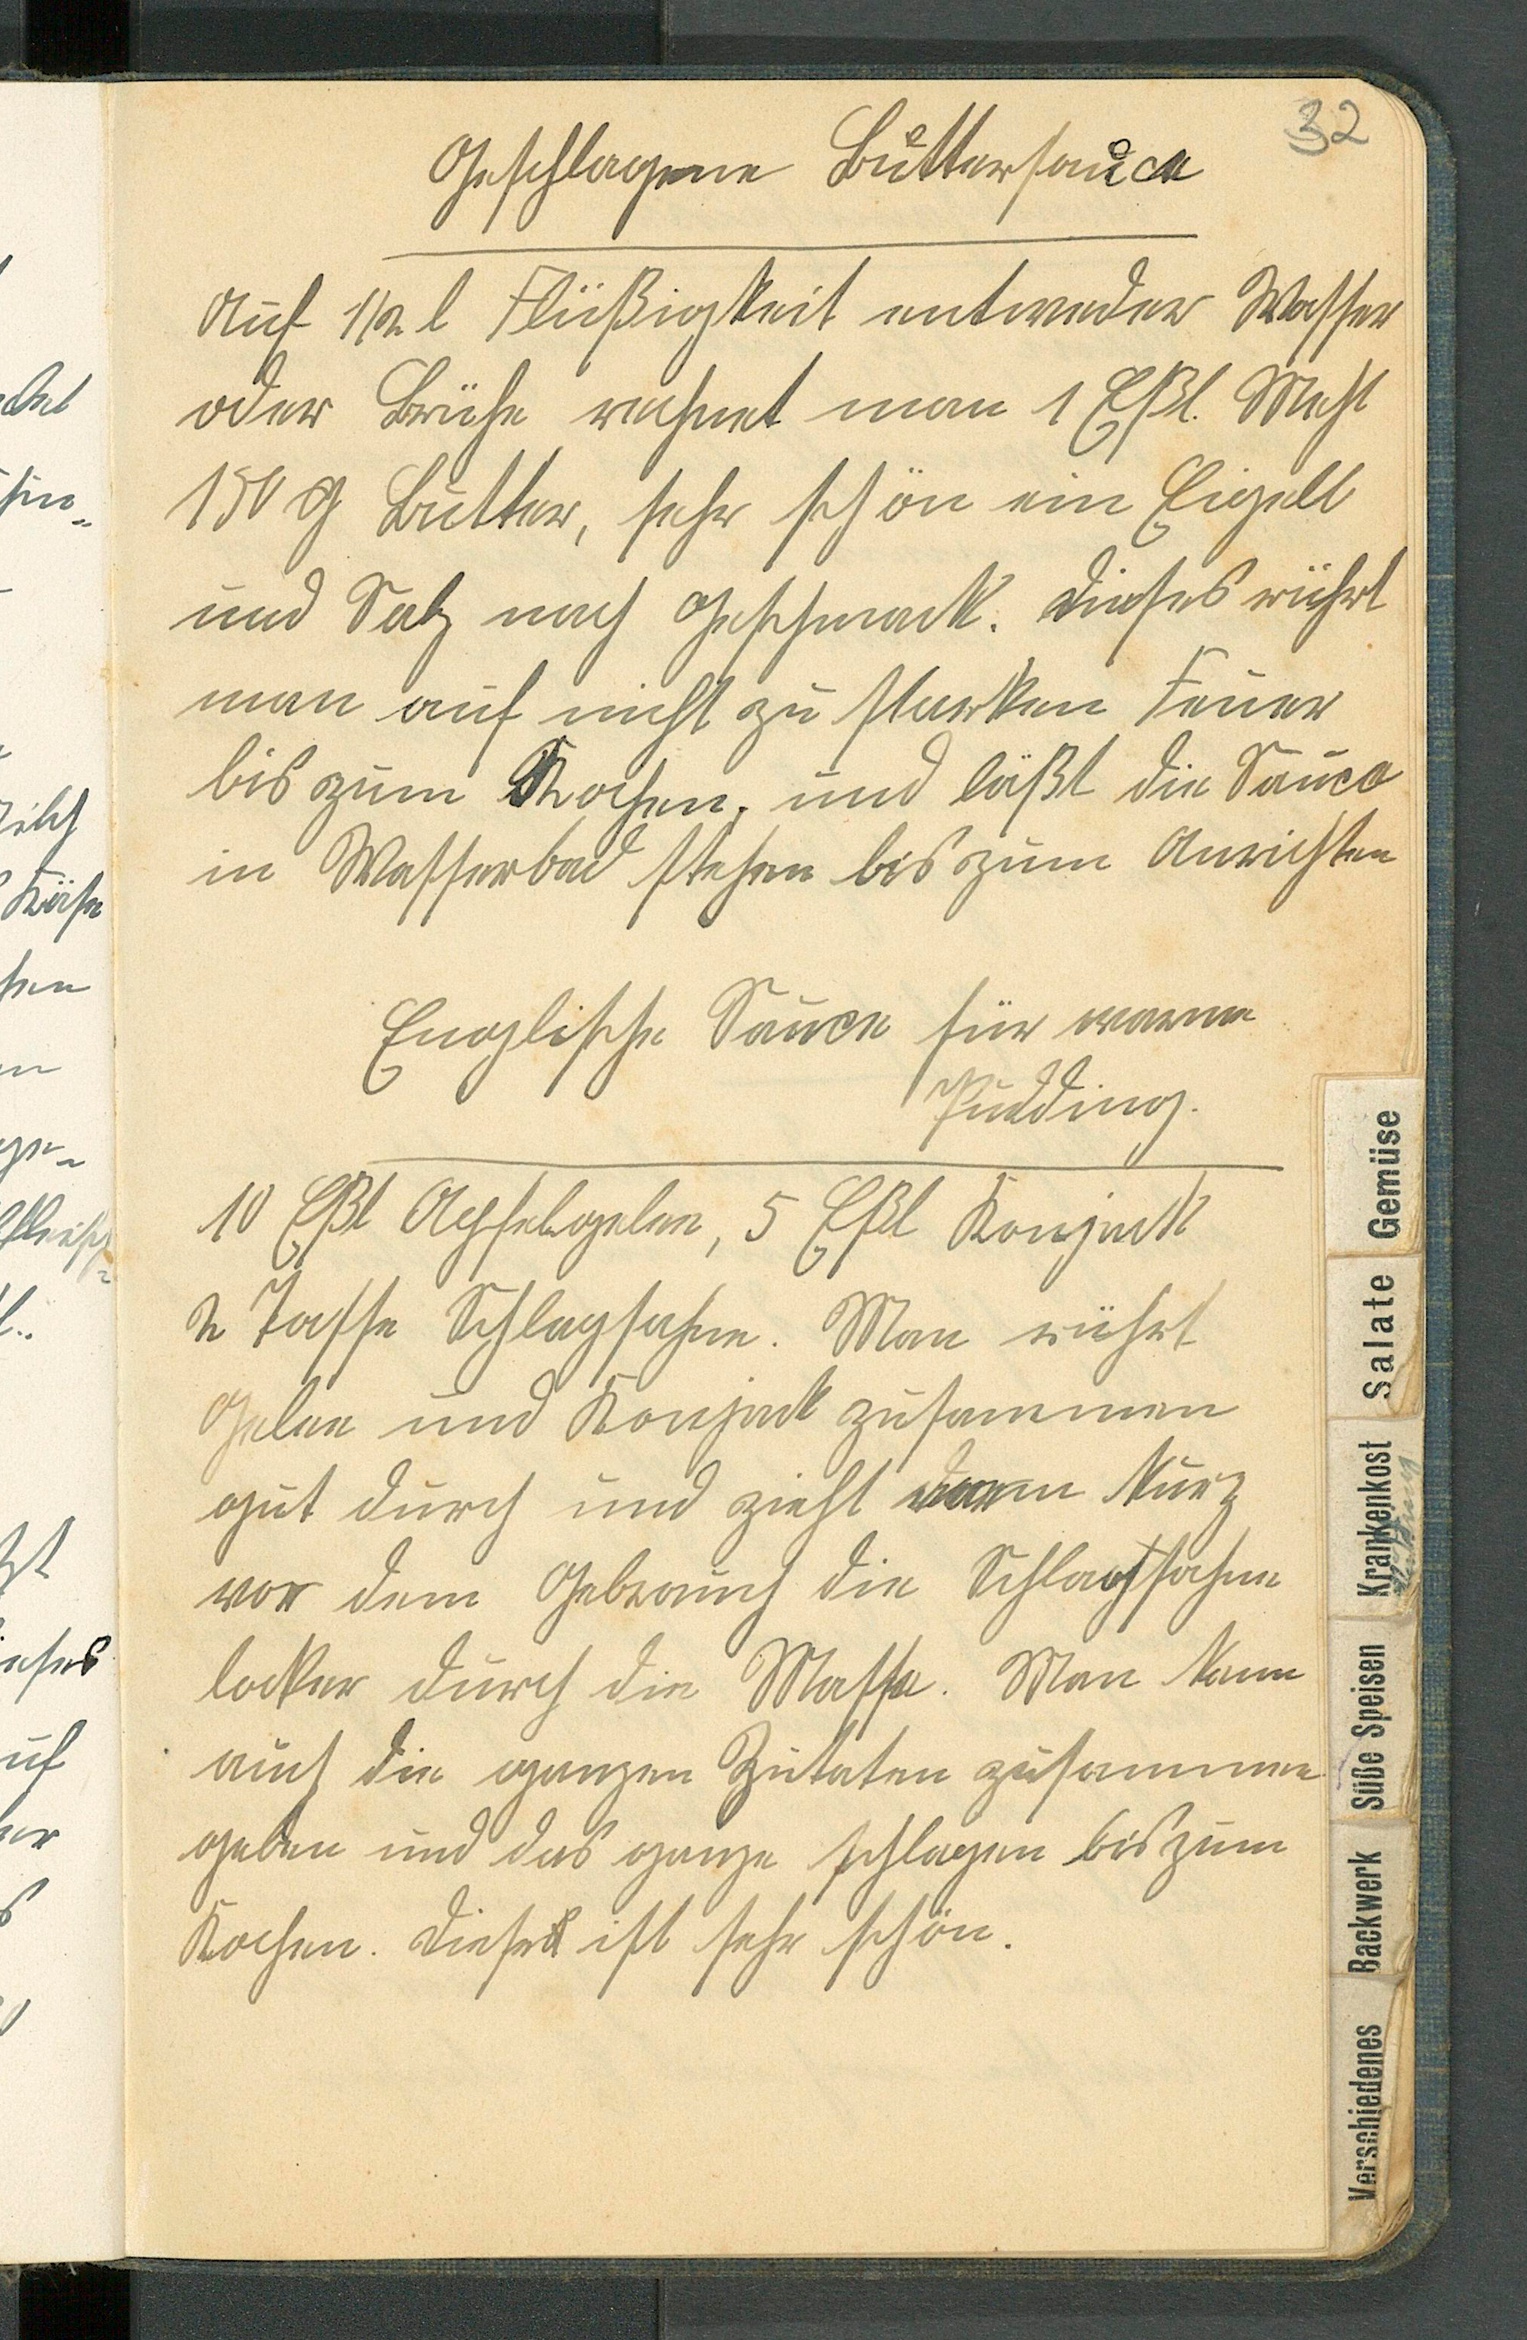 32
Geschlagene Buttersauce
Auf 1/2 l Flüßigkeit entweder Wasser
oder Brühe rechnet man 1 Eßl. Mehl
150 g Butter, sehr schön ein Eigelb
und Salz nach Geschmack. Dieses rührt
man auf nicht zu starken Feuer
bis zum Kochen. und läßt die Sauce
in Wasserbad stehen bis zum Anrichten
Englische Sauce für warme
Pudding.
10 Eßl Apfelgelee, 5 Eßl Konjack
2 Tasse Schlagsahne. Man rührt
Gelee und Konjack zusammen
gut durch und zieht dann kurz
vor dem Gebrauch die Schlagsahne
locker durch die Masse. Man kann
auch die ganzen Zutaten zusammen
geben und das ganze schlagen bis zum
Kochen. Dieses ist sehr schön.
Gemüse
Salate
Krankenkost
Süße Speisen
Backwerk
Verschiedenes